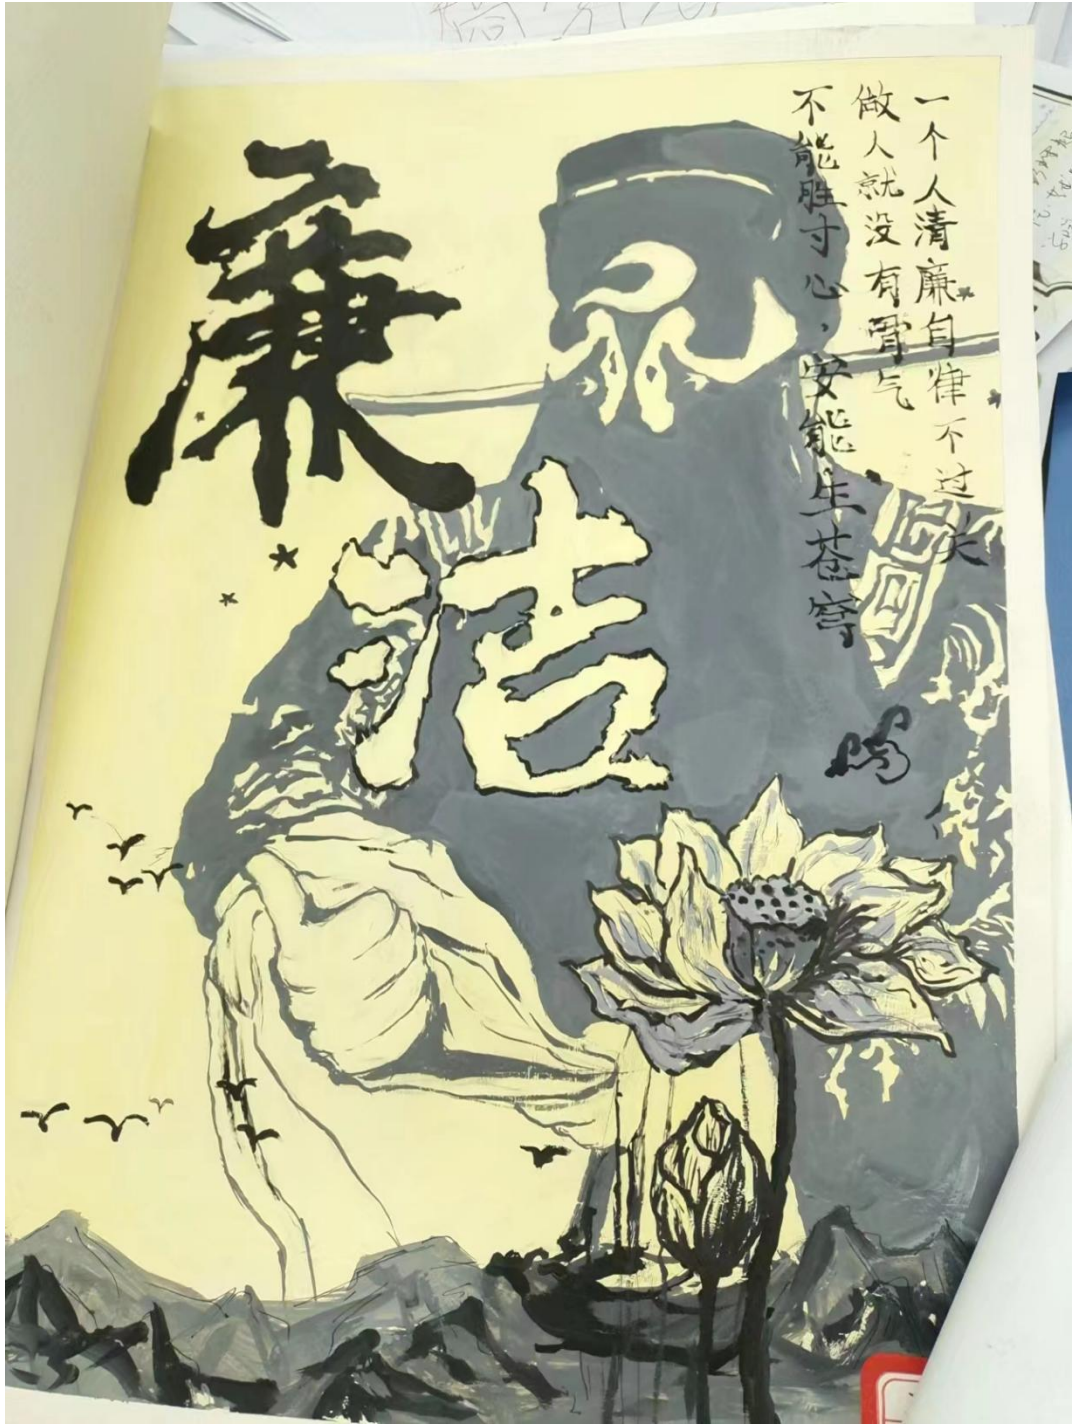 廉
洁
一个人清廉自律不过关
做人就没有骨气
不能胜寸心，安能生苍穹